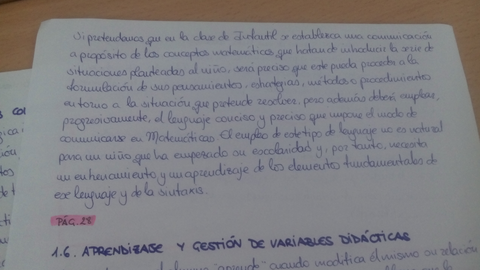 Si pretendemos, que en la clase de Infantil se establezca una comunicación
a propósito de los conceptos matemáticos, que tratan de introducir la serie de
situaciones planteadas al niño, será preciso que este pueda proceder a la
formulación de sus pensamientos, estrategias, métodos o procedimientos
en torno a la situación que pretende resolver, pero además deberá emplear,
progresivamente, el lenguaje conciso y preciso que impone el modo de
comunicarse en Matemáticas. El empleo de este tipo de lenguaje no es natural
para un niño, que ha empezado su escolaridad y, por tanto, necesita
un entrenamiento y un aprendizaje de los elementos fundamentales de
ese lenguaje y de la sintaxis.
PÁG. 28
1.6. APRENDIZAJE Y GESTIÓN DE VARIABLES DIDÁCTICAS
"aprende" cuando modifica él mismo su relación